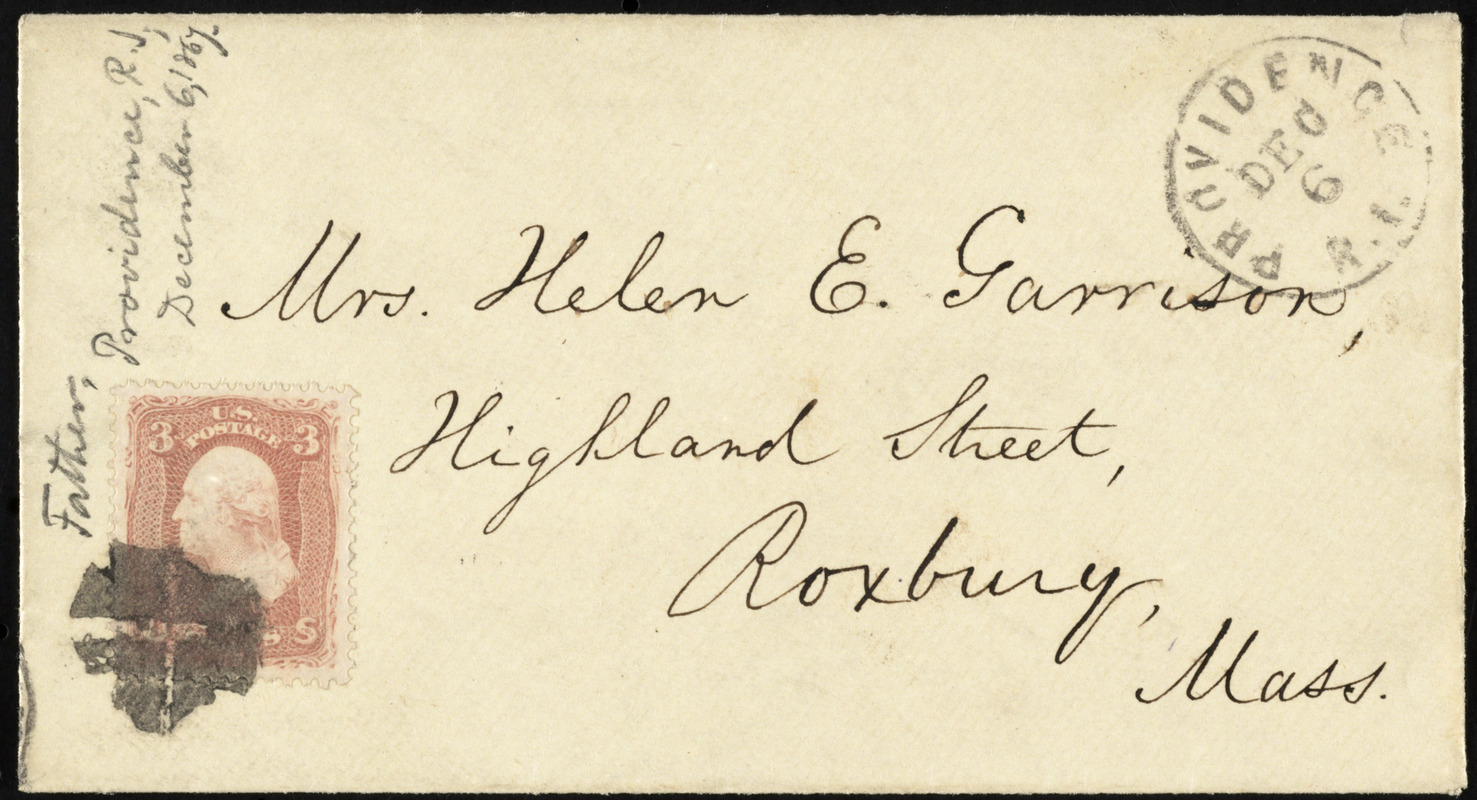 Father,
Providence, R.I.,
December 6, 1867.
PROVIDENCE R.I.
DEC
6
Mrs. Helen E. Garrison,
Highland Street,
Roxbury,
Mass.
U.S.
POSTAGE
3 3
S